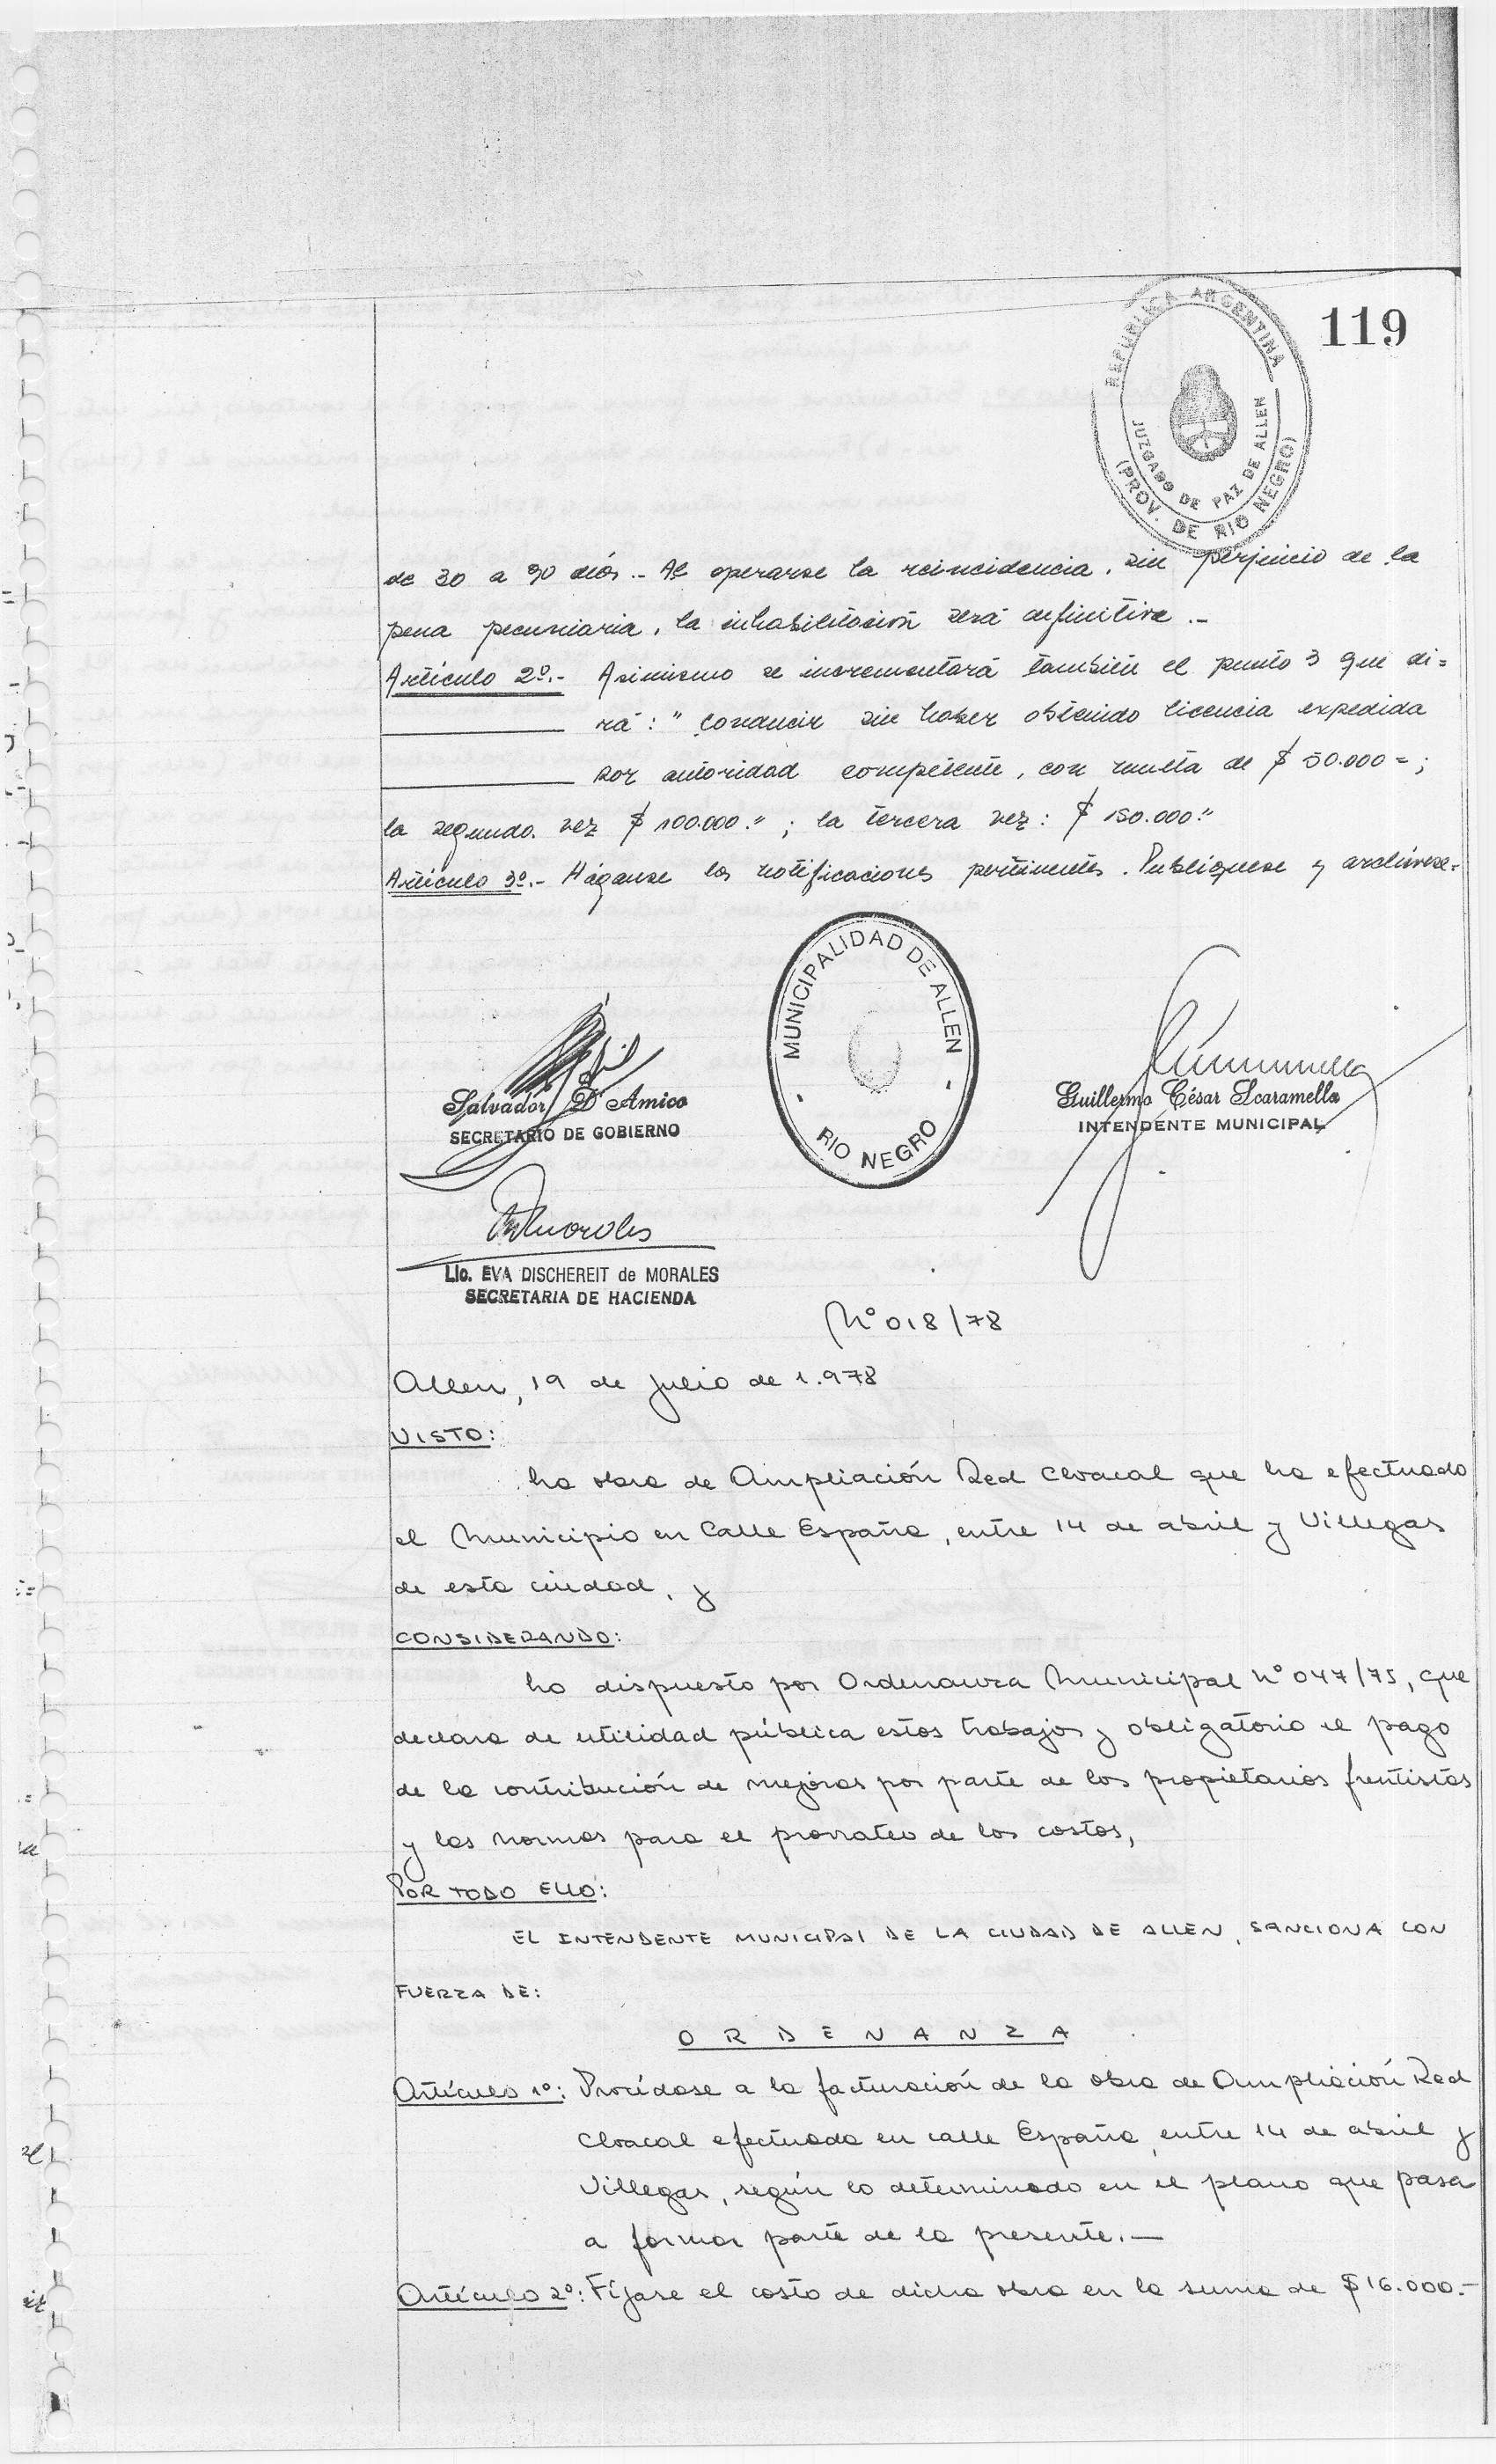 119
REPUBLICA ARGENTINA
JUZGADO DE PAZ DE ALLEN
(PROV. DE RIO NEGRO)
de 30 a 90 días.- Al operarse la reincidencia, sin perjuicio de la
pena pecuniaria, la inhabilitación será definitiva.-
Artículo 2º.- Asimismo se incrementará también el punto 3 que di=
rá: " Conducir sin haber obtenido licencia expedida
por autoridad competente, con multa de $ 50.000=;
la segunda vez $ 100.000."; la tercera vez: $ 150.000."
Artículo 3º.- Háganse las notificaciones pertinentes. Publíquese y archívese.-
MUNICIPALIDAD DE ALLEN
- RIO NEGRO -
Salvador D'Amico
SECRETARIO DE GOBIERNO
Guillermo César Scaramella
INTENDENTE MUNICIPAL
Lic. EVA DISCHEREIT de MORALES
SECRETARIA DE HACIENDA
Nº 018/78
Allen, 19 de julio de 1.978
VISTO:
La obra de Ampliación Red Cloacal que ha efectuado
el Municipio en Calle España, entre 14 de abril y Villegas
de esta ciudad, y
CONSIDERANDO:
Lo dispuesto por Ordenanza Municipal nº 047/75, que
declara de utilidad pública estos trabajos y obligatorio el pago
de la contribución de mejoras por parte de los propietarios frentistas
y las normas para el prorrateo de los costos,
POR TODO ELLO:
EL INTENDENTE MUNICIPAL DE LA CIUDAD DE ALLEN, SANCIONA CON
FUERZA DE:
O R D E N A N Z A
Artículo 1º: Procédase a la facturación de la obra de Ampliación Red
Cloacal efectuada en calle España, entre 14 de abril y
Villegas, según lo determinado en el plano que pasa
a formar parte de la presente.—
Artículo 2º: Fíjase el costo de dicha obra en la suma de $ 16.000.-